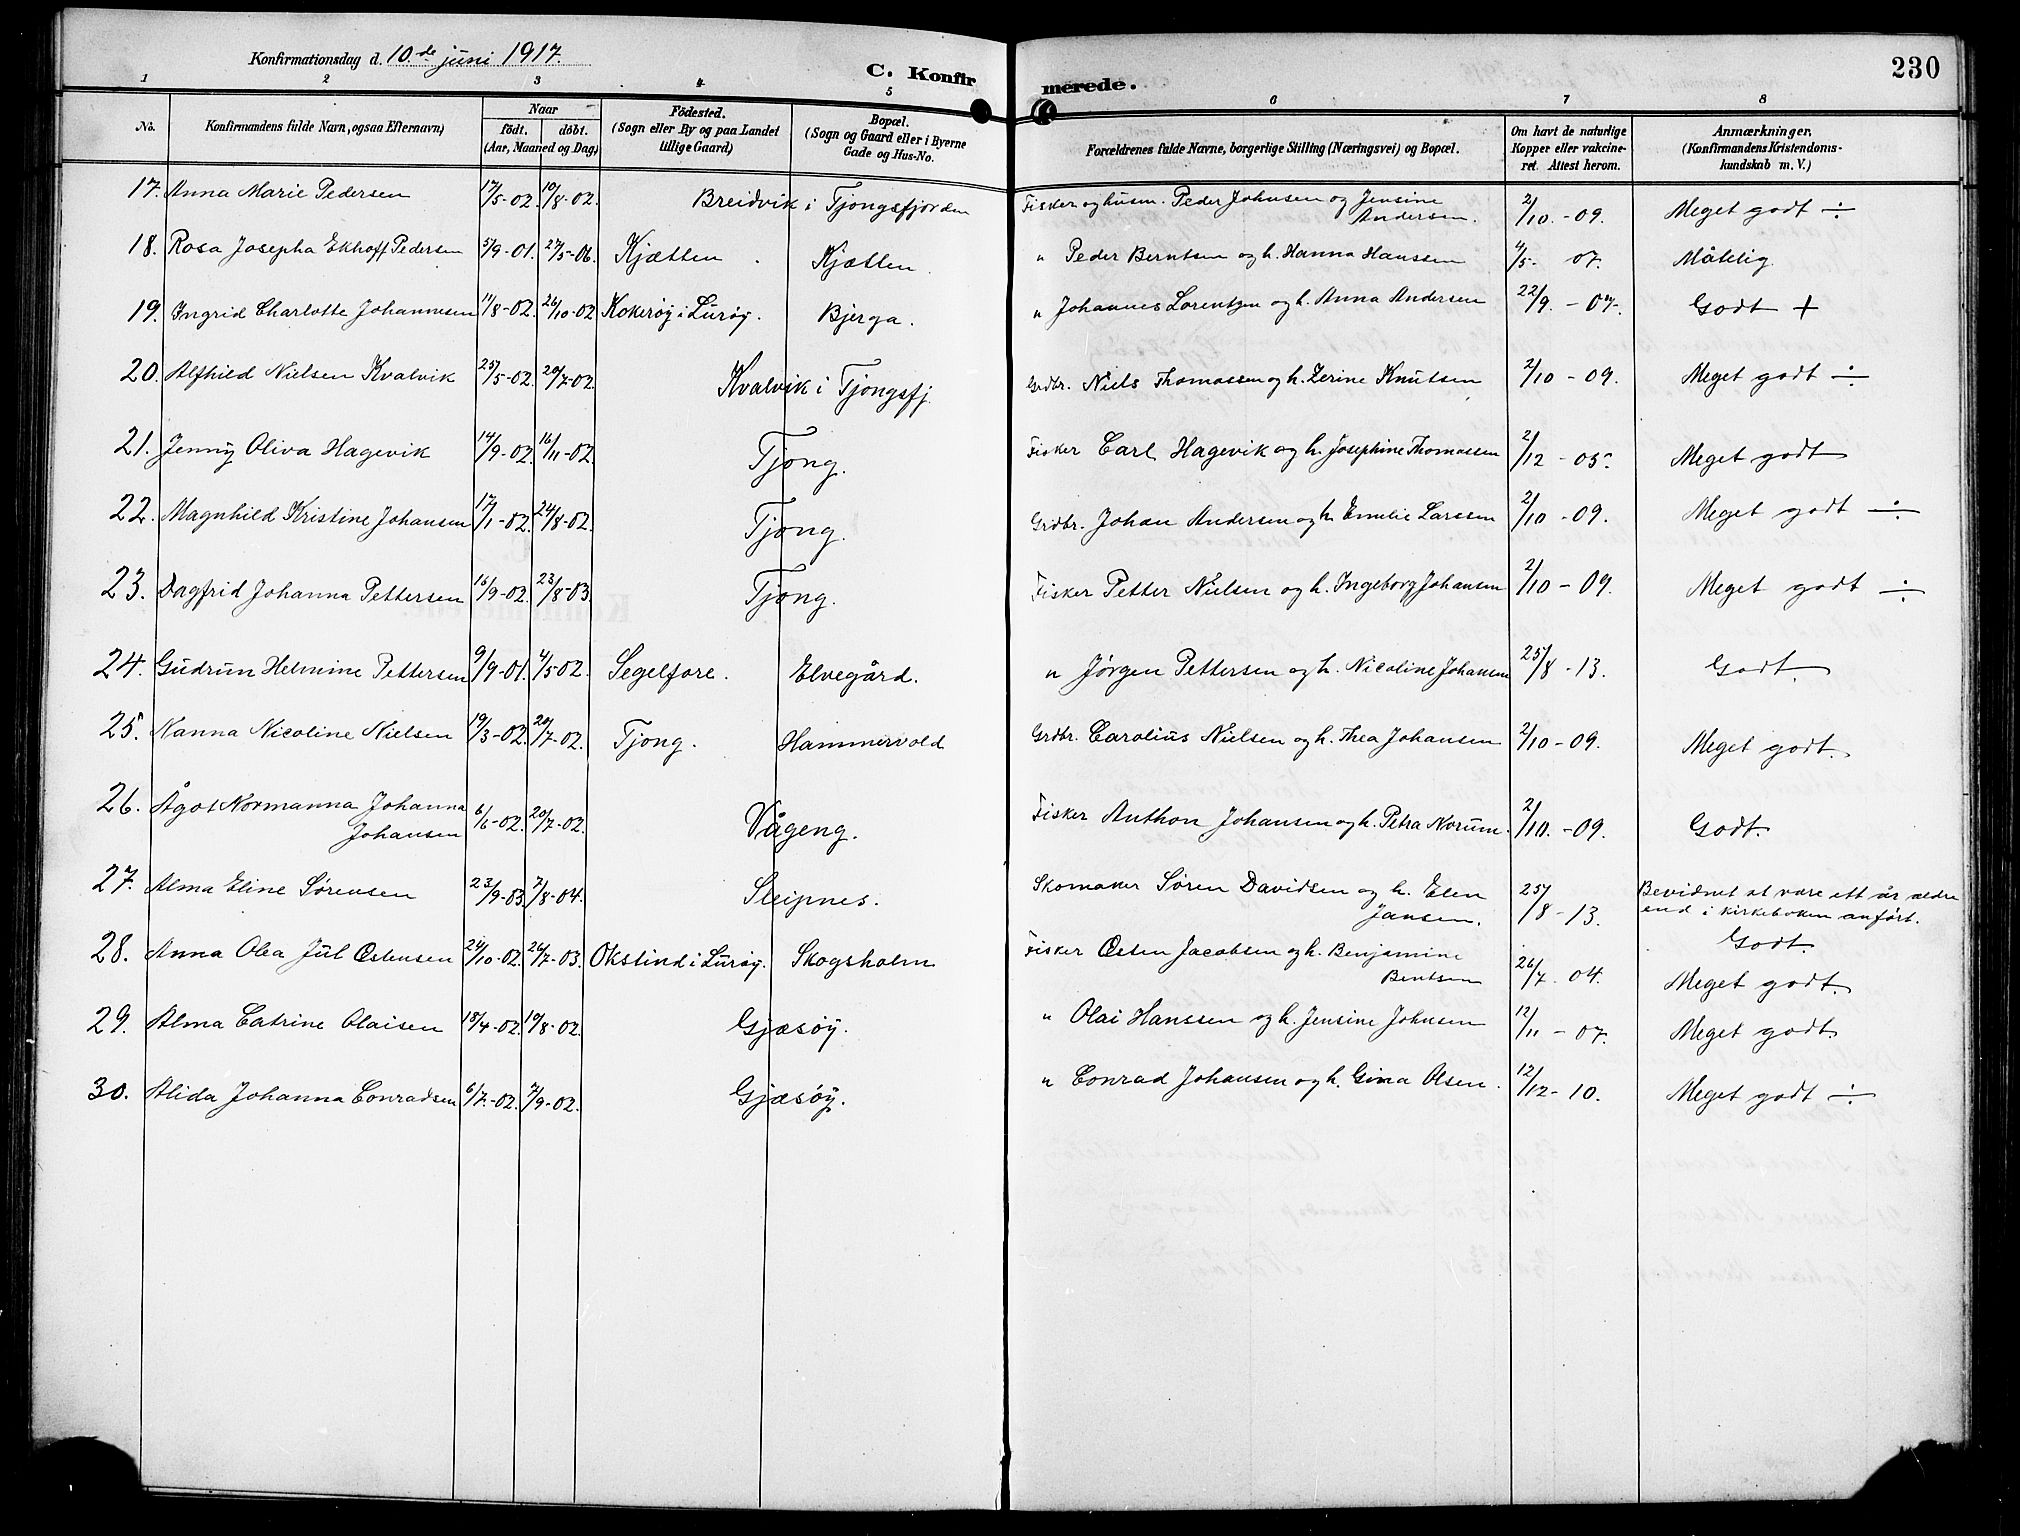 Konfirmationsdag d. 10.de juni 1917.
C. Konfirmerede.
230
1 2 3 4 5 6 7 8
No. Konfirmandens fulde Navn, ogsaa Efternavn) Naar födt. döbt. (Aar, Maaned og Dag) Födested. (Sogn eller By og paa Landet tillige Gaard) Bopæl. (Sogn og Gaard eller i Byerne Gade og Hus-No. Forældrenes fulde Navne, borgerlige Stilling (Næringsvei) og Bopæl. Om havt de naturlige Kopper eller vakcineret. Attest herom. Anmærkninger, (Konfirmandens Kristendomskundskab m. V.)
17. Anna Marie Pedersen 17/5-02. 10/8-02. Breidvik i Tjongsfjorden Fisker og husm. Peder Johnsen og Jensine Andersen. 2/10.-09. Meget godt ÷
18. Rosa Josepha Ekhoff Pedersen 5/9-01. 27/5-06. Kjætten. Kjætten. " Peder Berntsen og h. Hanna Hanssen 4/5- 07. Måtelig
19. Ingrid Charlotte Johannesen 11/8-02. 26/10-02 Kokerøy i Lurøy. Bjerga. " Johannes Lorentzen og h. Anna Andersen 22/9. - 07. Godt +
20. Alfhild Nielsen Kvalvik 25/5-02. 20/7-02. Kvalvik i Tjongsfj. Grdbr. Niels Thomassen og h. Zerine Knutsen 2/10 - 09. Meget godt ÷
21. Jenny Oliva Hagevik 14/9-02. 16/11-02. Tjong. Fisker Carl Hagevik og h. Josephine Thomassen 2/12 - 05. Meget godt
22. Magnhild Kristine Johansen 17/1-02. 24/8-02. Tjong. Grdbr. Johan Andersen og h. Emelie Larssen 2/10 -09. Meget godt ÷
23. Dagfrid Johanna Pettersen 16/9-02. 23/8-03. Tjong. Fisker Petter Nielsen og h. Ingeborg Johansen 2/10 - 09. Meget godt ÷
24. Gudrun Helmine Pettersen 9/9-01. 4/5-02. Segelfore. Elvegård. " Jørgen Pettersen og h. Nicoline Johansen 25/8 - 13. Godt.
25. Nanna Nicoline Nielsen 19/3-02. 20/7-02. Tjong. Hammervold Grdbr. Carolius Nielsen og h. Thea Johansen 2/10 - 09. Meget godt.
26. Ågot Normanna Johanna Johansen 6/6-02. 20/7-02. Vågeng. Fisker Anthon Johansen og h. Petra Norum. 2/10. -09. Godt.
27. Alma Eline Sørensen 23/9-03. 7/8-04. Sleipnes. Skomaker Søren Davidsen og h. Elen Jansen. 25/8 - 13. Bevidnet at være ett år ældre end i kirkeboken anført. Godt.
28. Anna Olea Jul Østensen 24/10-02. 26/7-03. Okstind i Lurøy. Skogsholm Fisker Østen Jacobsen og h. Benjamine Bentsen 26/7. 04. Meget godt.
29. Alma Catrine Olaisen 18/4-02. 19/8-02. Gjæsøy. " Olai Hanssen og h. Jensine Johnsen 12/11 - 07. Meget godt.
30. Alida Johanna Conradsen 6/7.-02. 7/9-02. Gjæsøy. " Conrad Johansen og h. Gina Olsen. 12/12 - 10. Meget godt ÷